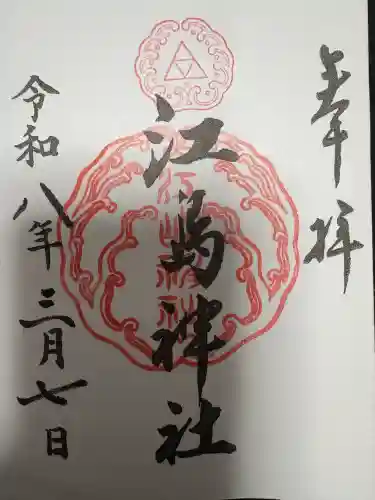 奉拝
江島神社
令和八年三月七日
江島神社